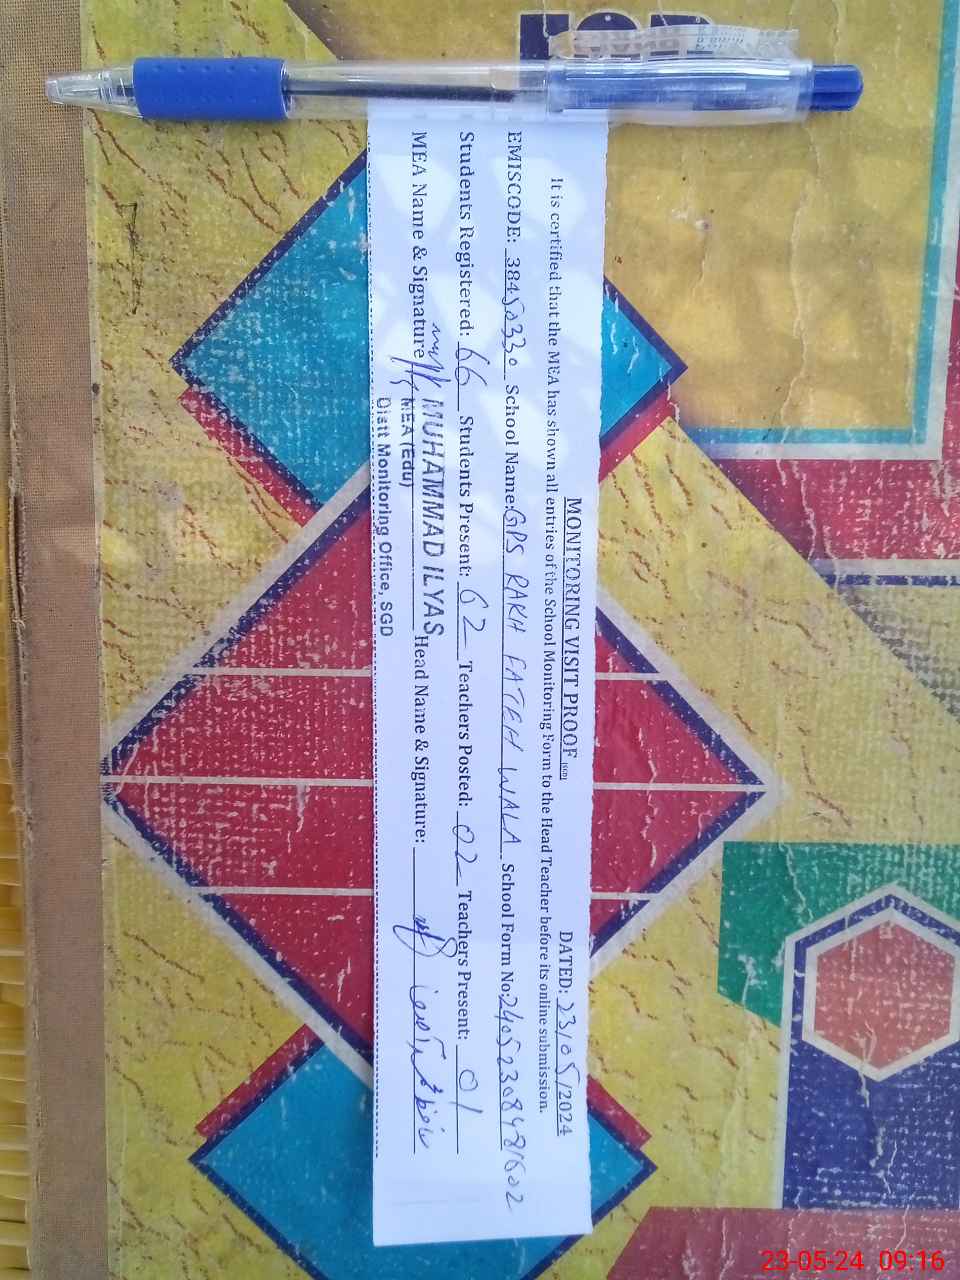 MONITORING VISIT PROOF
DATED: 23/05/2024
It is certified that the MEA has shown all entries of the School Monitoring Form to the Head Teacher before its online submission.
EMISCODE: 38450330 School Name: GPS RAKH FATEH WALA School Form No: 24052308481602
Students Registered: 66 Students Present: 62 Teachers Posted: 02 Teachers Present: 01
MEA Name & Signature MUHAMMAD ILYAS Head Name & Signature:
MEA (Edu)
Distt Monitoring Office, SGD
23-05-24 09:16